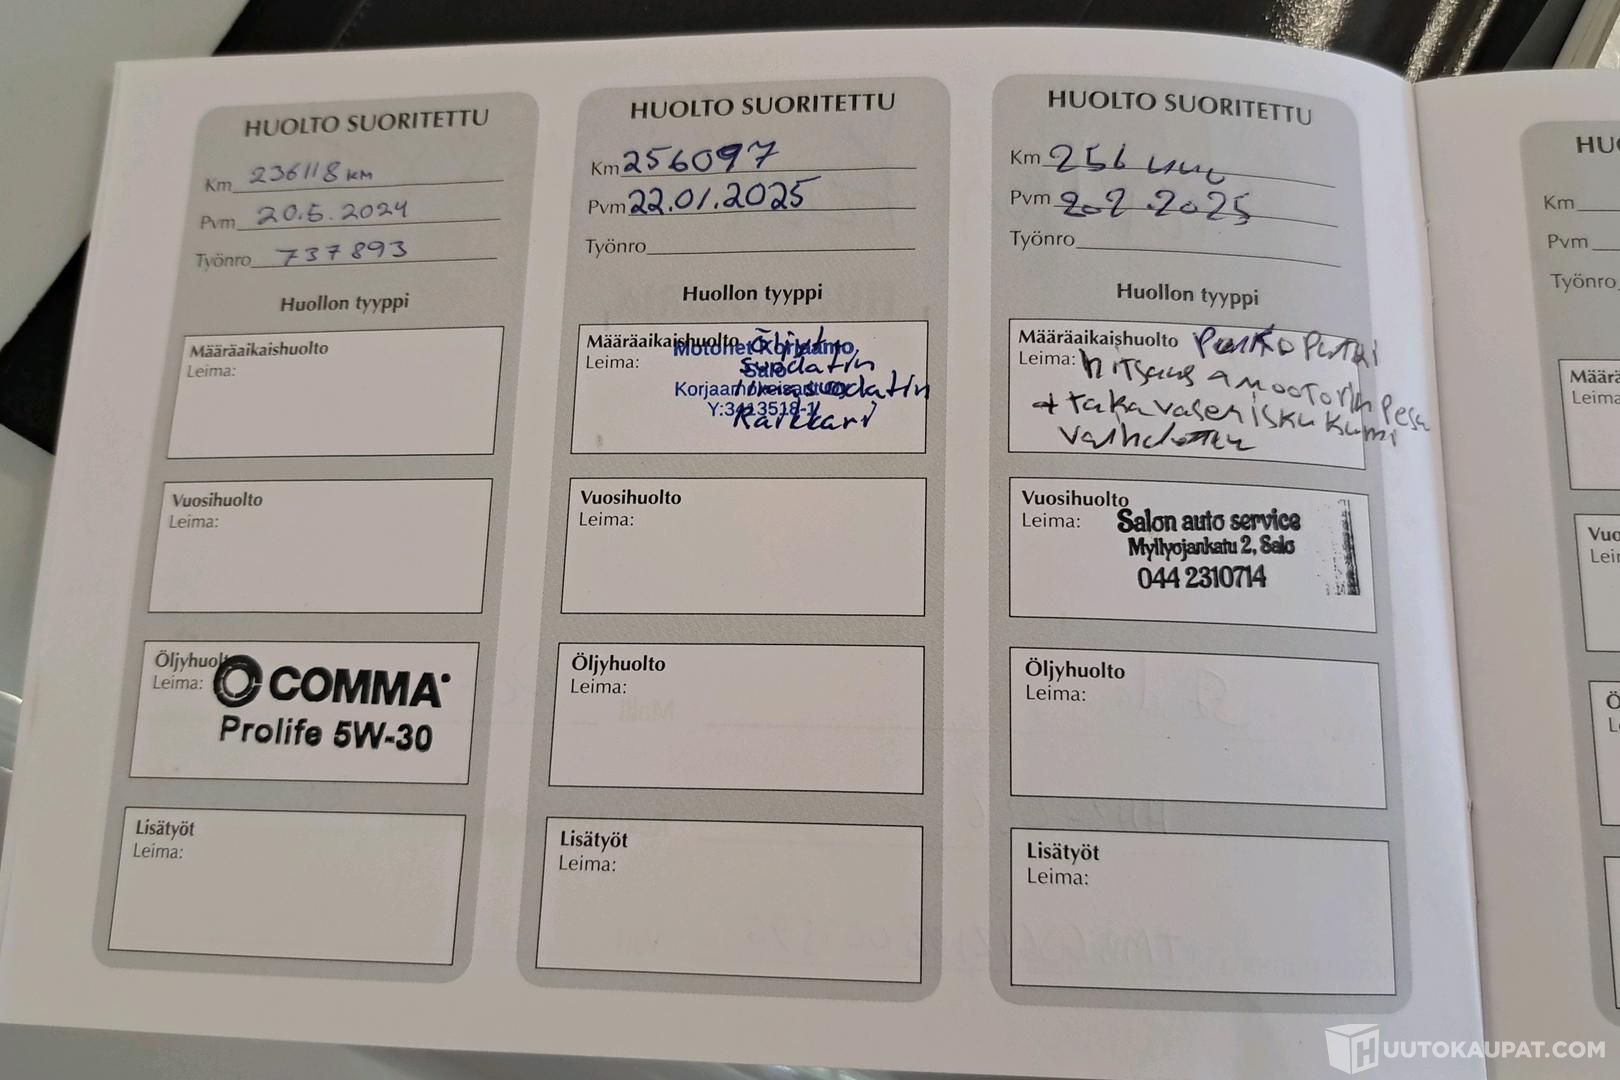 HUOLTO SUORITETTU
Km 236118 KM
Pvm 20.5.2024
Työnro 737893
Huollon tyyppi
Määräaikaishuolto
Leima:
Vuosihuolto
Leima:
Öljyhuolto
Leima:
COMMA
Prolife 5W-30
Lisätyöt
Leima:
HUOLTO SUORITETTU
Km 256097
Pvm 22.01.2025
Työnro
Huollon tyyppi
Määräaikaishuolto
Leima:
Motonet Korjaamo,
Salo
suodatin
Y:3413518-1
Vuosihuolto
Leima:
Öljyhuolto
Leima:
Lisätyöt
Leima:
HUOLTO SUORITETTU
Km 256
Pvm 2025
Työnro
Huollon tyyppi
Määräaikaishuolto
Leima:
hitsaus
+ takavasen iskukumi
Vuosihuolto
Leima:
Salon auto service
Myllyojankatu 2, Salo
044 2310714
Öljyhuolto
Leima:
Lisätyöt
Leima:
Km
Pvm
Työnro
HUUTOKAUPAT.COM